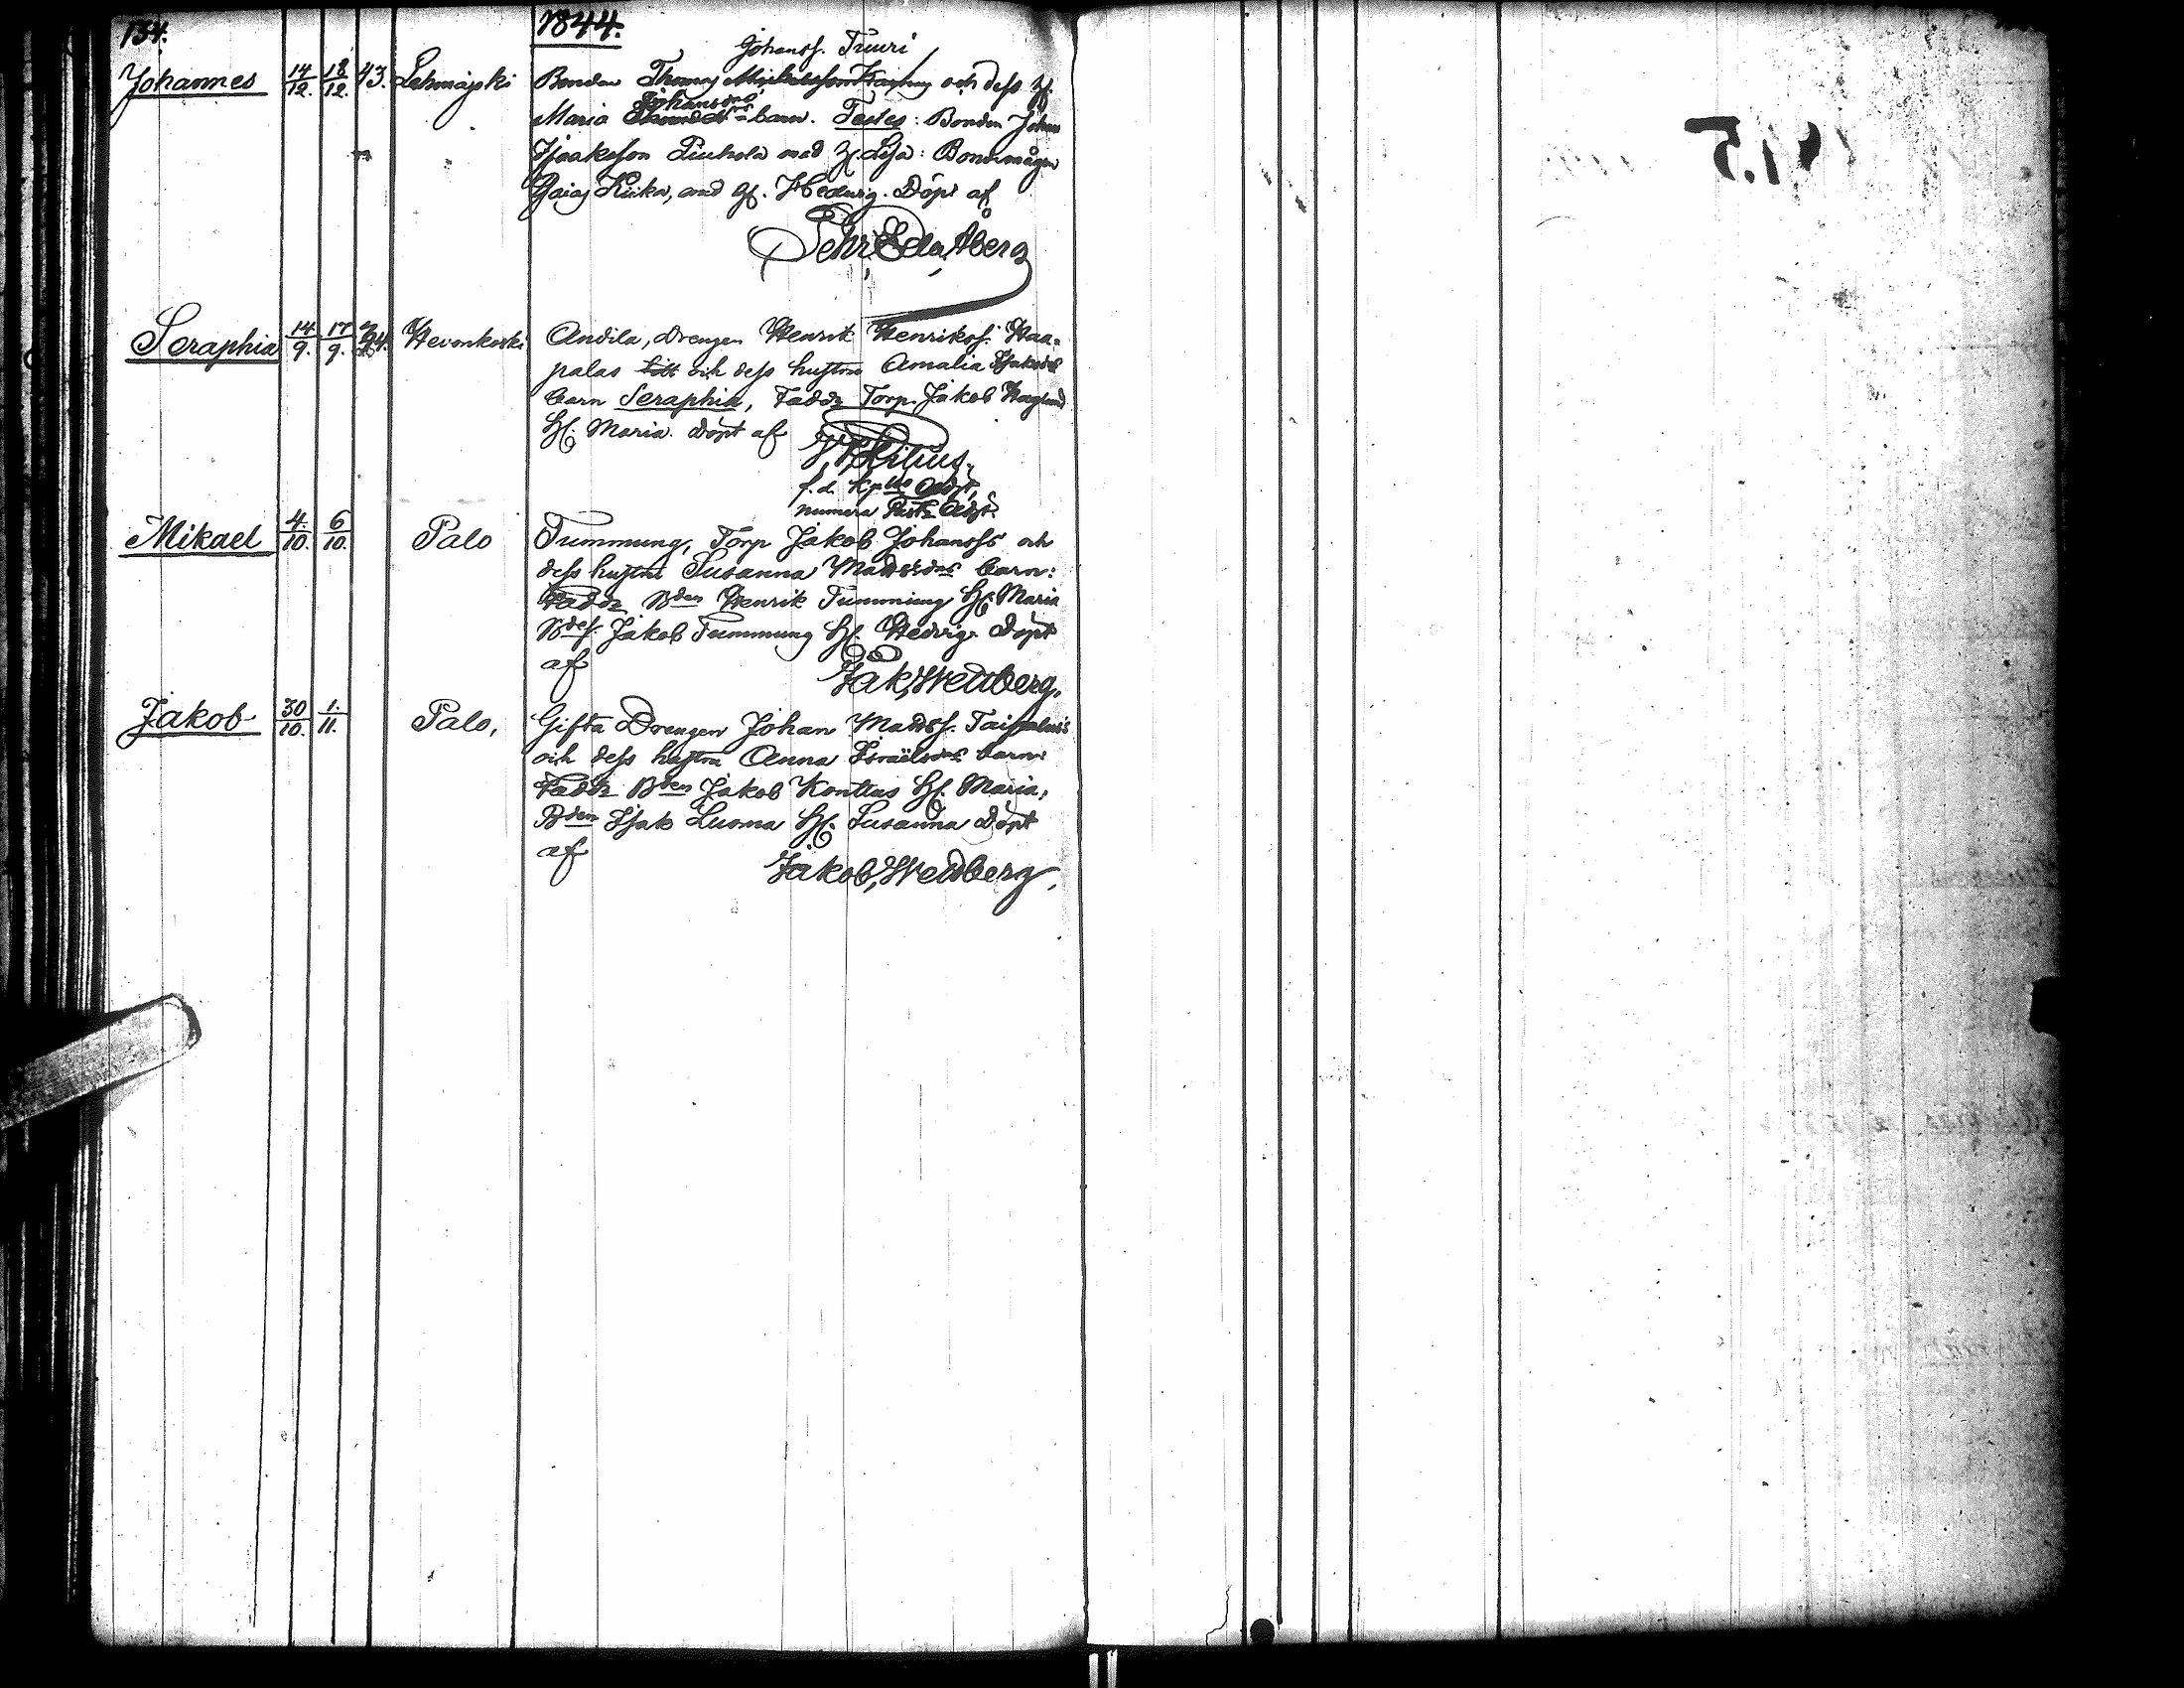 154.
1844.
Johannes 14/12. 18/12. 43. Lehmäjoki
Johanss. Tuuri
Bonden Thomas och dess H.
Johansdr
Maria barn. Testes: Bonden Johan
Isaaksson med H. Lisa: Bondemågen
Kiika, med H. Hedvig. Döpt af
Pehr Åberg
Seraphia 14/9. 17/9. 44. Hevonkoski
Andila, Drengen Henrik Henrikss. Haa=
palas och dess hustru Amalia Isaksdr
barn Seraphia, Faddr Torp. Jakob Haglund
H. Maria. Döpt af
Litius.
f. d. Adjt,
numera Adjt.
Mikael 4./10. 6/10. Palo
Tummung, Torp Jakob Johanss och
dess hustru Susanna Mattsdr barn:
Faddr Bden Henrik Tummung H. Maria
Jakob Tummung H. Hedvig. Döpt
af
Jak, Wedberg.
Jakob 30/10. 1./11. Palo,
Gifta Drengen Johan Matss. Taipalus's
och dess hustru Anna Israëlsdrs barn:
Faddr Bden Jakob Konttus H. Maria,
Bden Isak Luoma H. Susanna Döpt
af
Jakob, Wedberg,